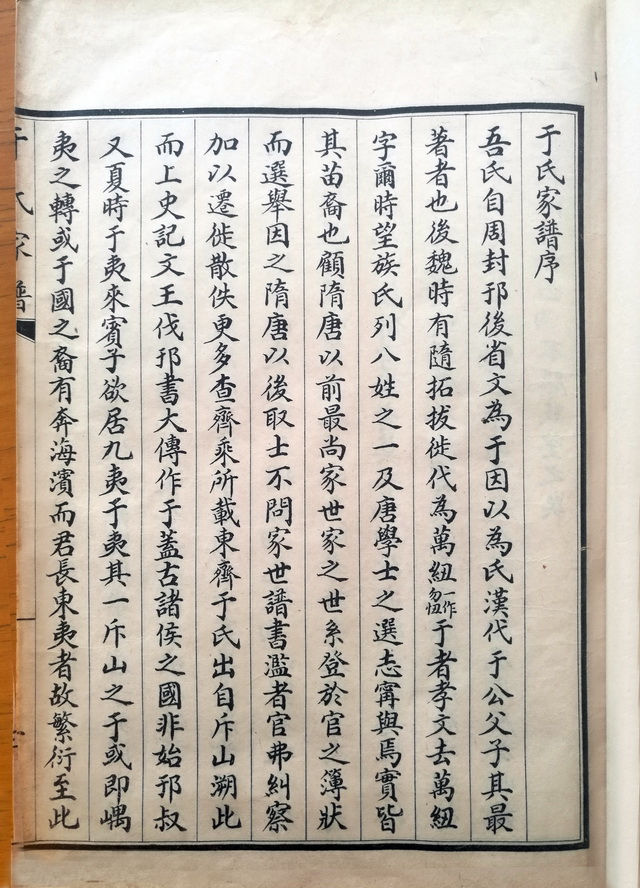 于氏家譜序
吾氏自周封邘後省文為于因以為氏漢代于公父子其最
著者也後魏時有隨拓拔徙代為萬紐一作勿忸于者孝文去萬紐
字爾時望族氏列八姓之一及唐學士之選志寧與焉實皆
其苗裔也顧隋唐以前最尚家世家之世系登於官之簿狀
而選舉因之隋唐以後取士不問家世譜書濫者官弗糾察
加以遷徙散佚更多查齊乘所載東齊于氏出自斥山溯此
而上史記文王伐邘書大傳作于蓋古諸侯之國非始邘叔
又夏時于夷來賓子欲居九夷于夷其一斥山之于或即嵎
夷之轉或于國之裔有奔海濱而君長東夷者故繁衍至此
于氏家譜